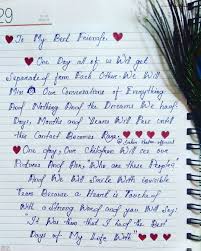 29
To My Best Friends.
One Day all of us Will get
Separated from Each Other. We Will
Miss Our Conversations of Everything
And Nothing And the Dreams We had.
Days, Months and Years Will Pass Until
this Contact Becomes Rare.
One day, Our Children Will see our
Pictures And Ask, "Who are these People"?
And We Will Smile With invisible
Tears Because a Heart is Touched
Will a Strong Word and you Will Say:
"It Was them that I had the Best
Days of My Life With"